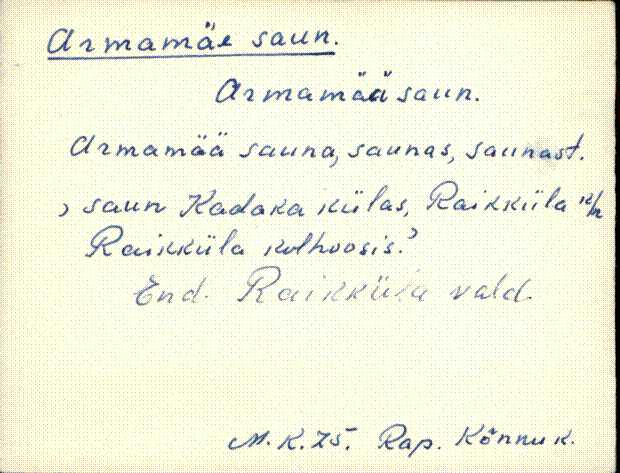 Armamäe saun.
Armamää saun.
Armamää sauna, saunas, saunast.
, saun Kadaka külas, Raikküla k/n
Raikküla kolhoosis.’
End. Raikküla vald.
M. K. 75. Rap. Kõnnu k.